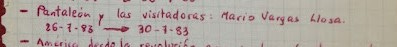 - Pantaleón y las visitadoras: Mario Vargas Llosa.
26-7-83 → 30-7-83
- América desde la revolución